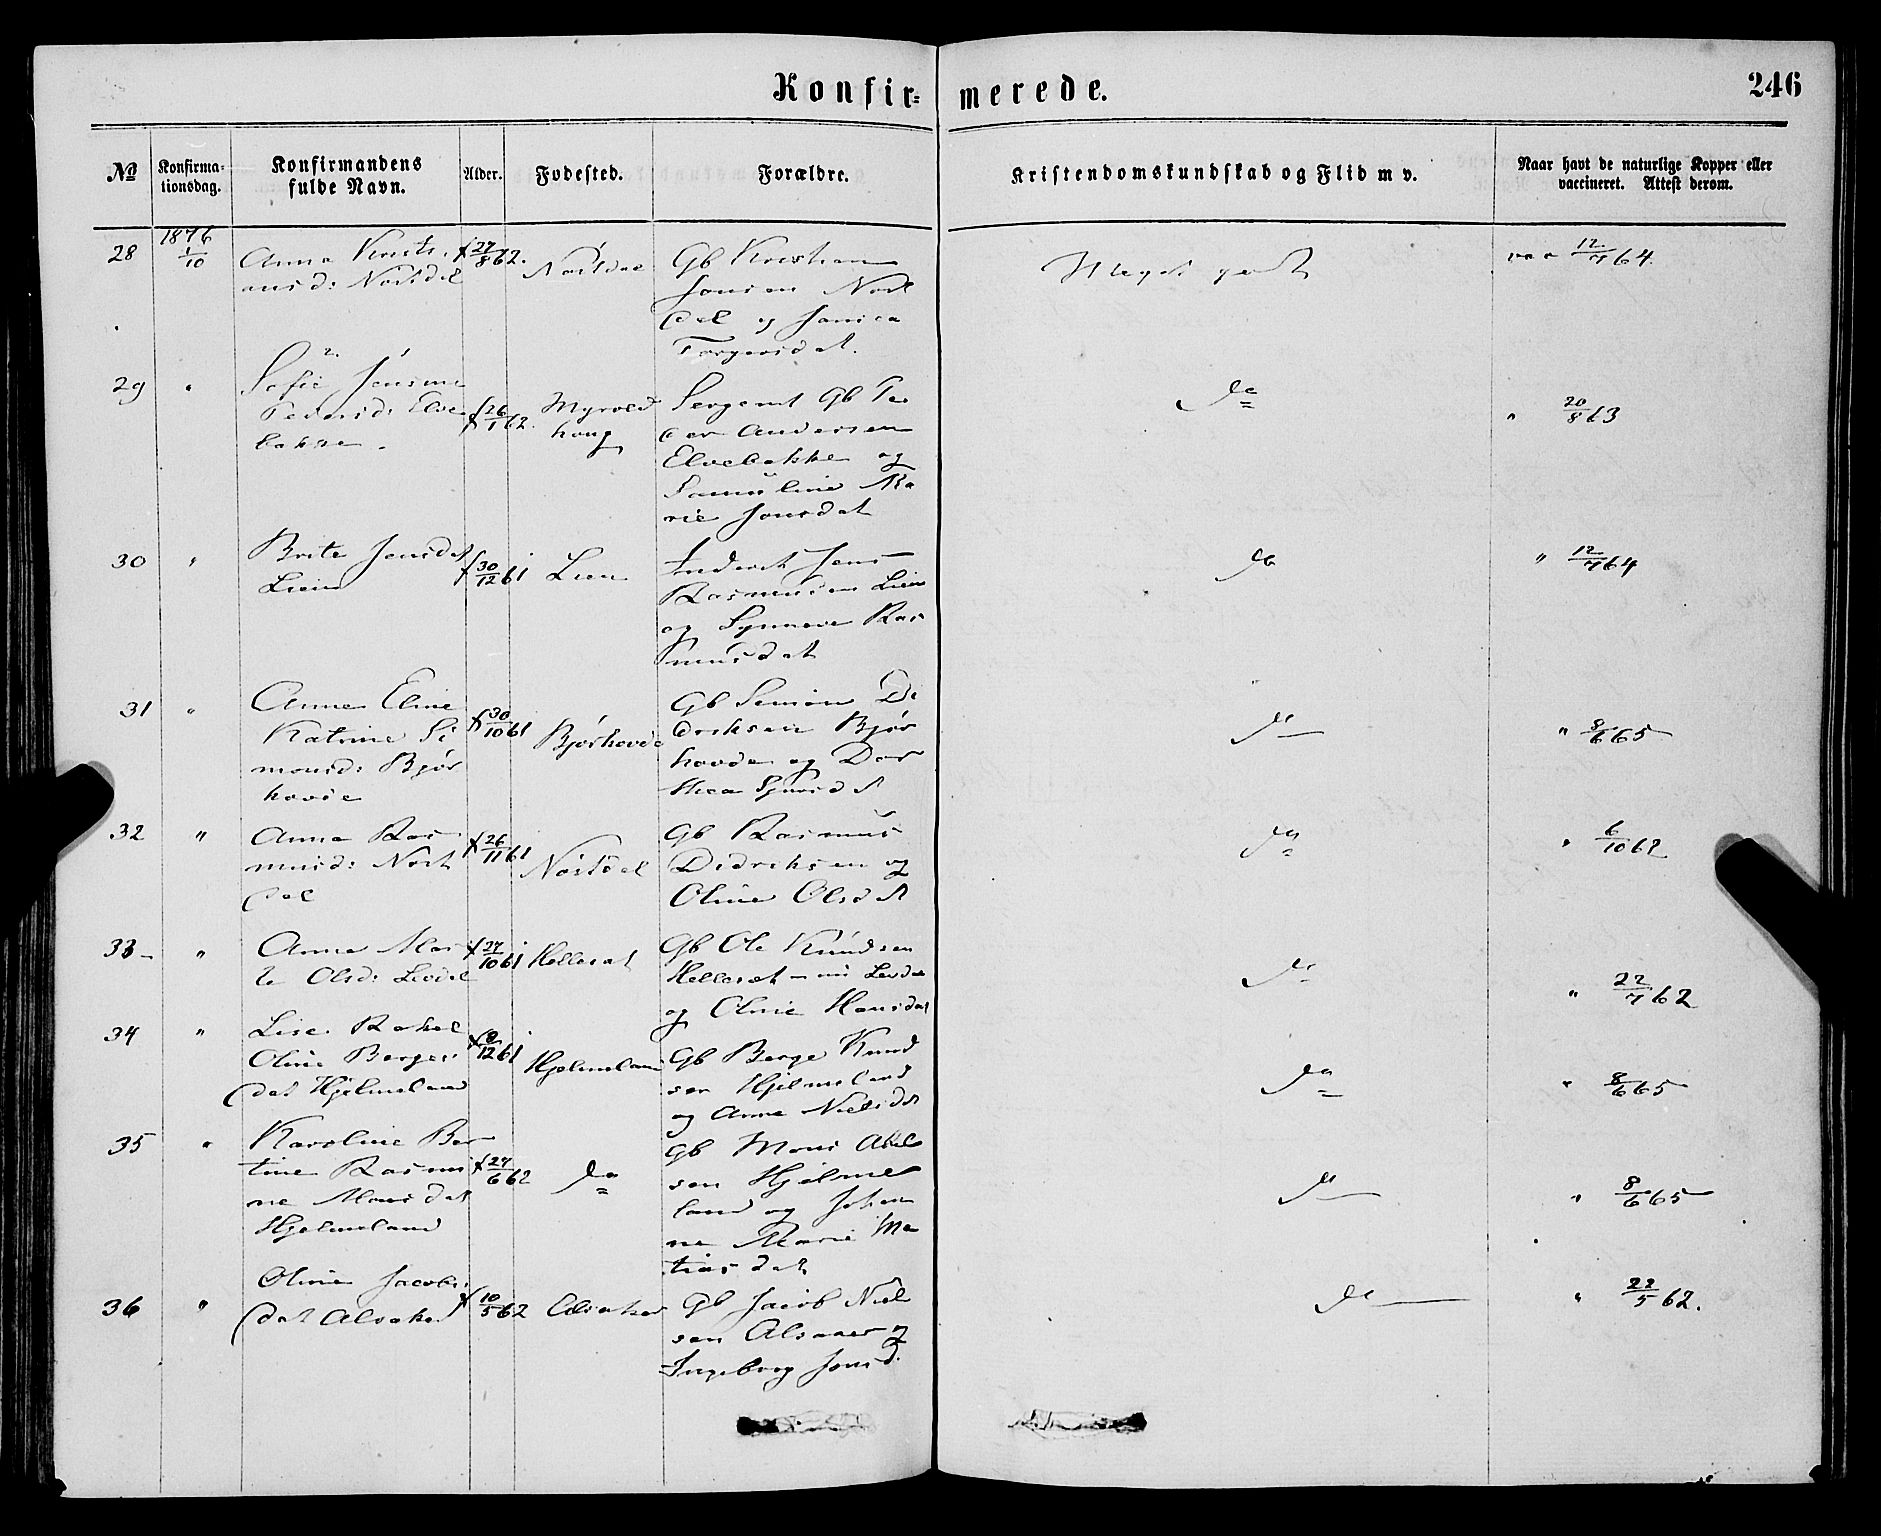 Konfirmerede.
246
No
Konfirmationsdag.
Konfirmandens fulde Navn.
Alder.
Fødested.
Forældre.
Kristendomskundskab og Flid m v.
Naar havt de naturlige Kopper eller vaccineret. Attest derom.
28
1876
1/10
Anna Kristi
ansd: Nordal
f 27/8 62.
Gb Kristian
Jonsen
dal og
vac 12/7 64.
Meget godt
29
"
Sofie Jensine
Pedersd: Elve
bakke
f 26/1 62.
Myrold
haug
Sergeant Gb Pe
der Andersen
Elvebakke og
Samuline Ma
rie Jonsdat
do
" 20/8 63
30
"
Brite Jensdat
Lien
f 30/12 61
Lien
Inderst Jens
Rasmussen Lien
og Synneve Ras
musdat
do
" 12/7 64
31
"
Anne Eline
Katrine Si
monsd: Bjør
hovde
f 30/10 61
Bjørhovde
Gb Simon Di
driksen Bjør
hovde og Dor
thea Sjursdt
do
" 8/6 65
32
"
Anna Ras
musd:
dal
f 26/11 61
Gb Rasmus
Didriksen og
Oline Olsdt
do
" 6/10 62
33
"
Anna Mar
te Olsd:
f 27/10 61
Helleset
Gb Ole Knudsen
Helleset
og Oline Hansdat
do
" 22/7 62
34
"
Lise Rakel
Oline Berges
dat Hjelmeland
f 8/12 61
Hjelmeland
Gb Berge Knud
sen Hjelmeland
og Anne Nielsdt
do
" 8/6 65
35
"
Karoline Ber
tine Rasmi
ne Monsdat
Hjelmeland
f 27/6 62
do
Gb Mons Abel
sen Hjelme
land og Johan
ne Marie Ma
tiasdat
do
" 8/6 65
36
"
Oline Jacobs
dat Alsaker
f 10/5 62
Alsaker
Gb Jacob Niel
sen Alsaker og
Ingeborg Jonsd.
do
" 22/5 62.